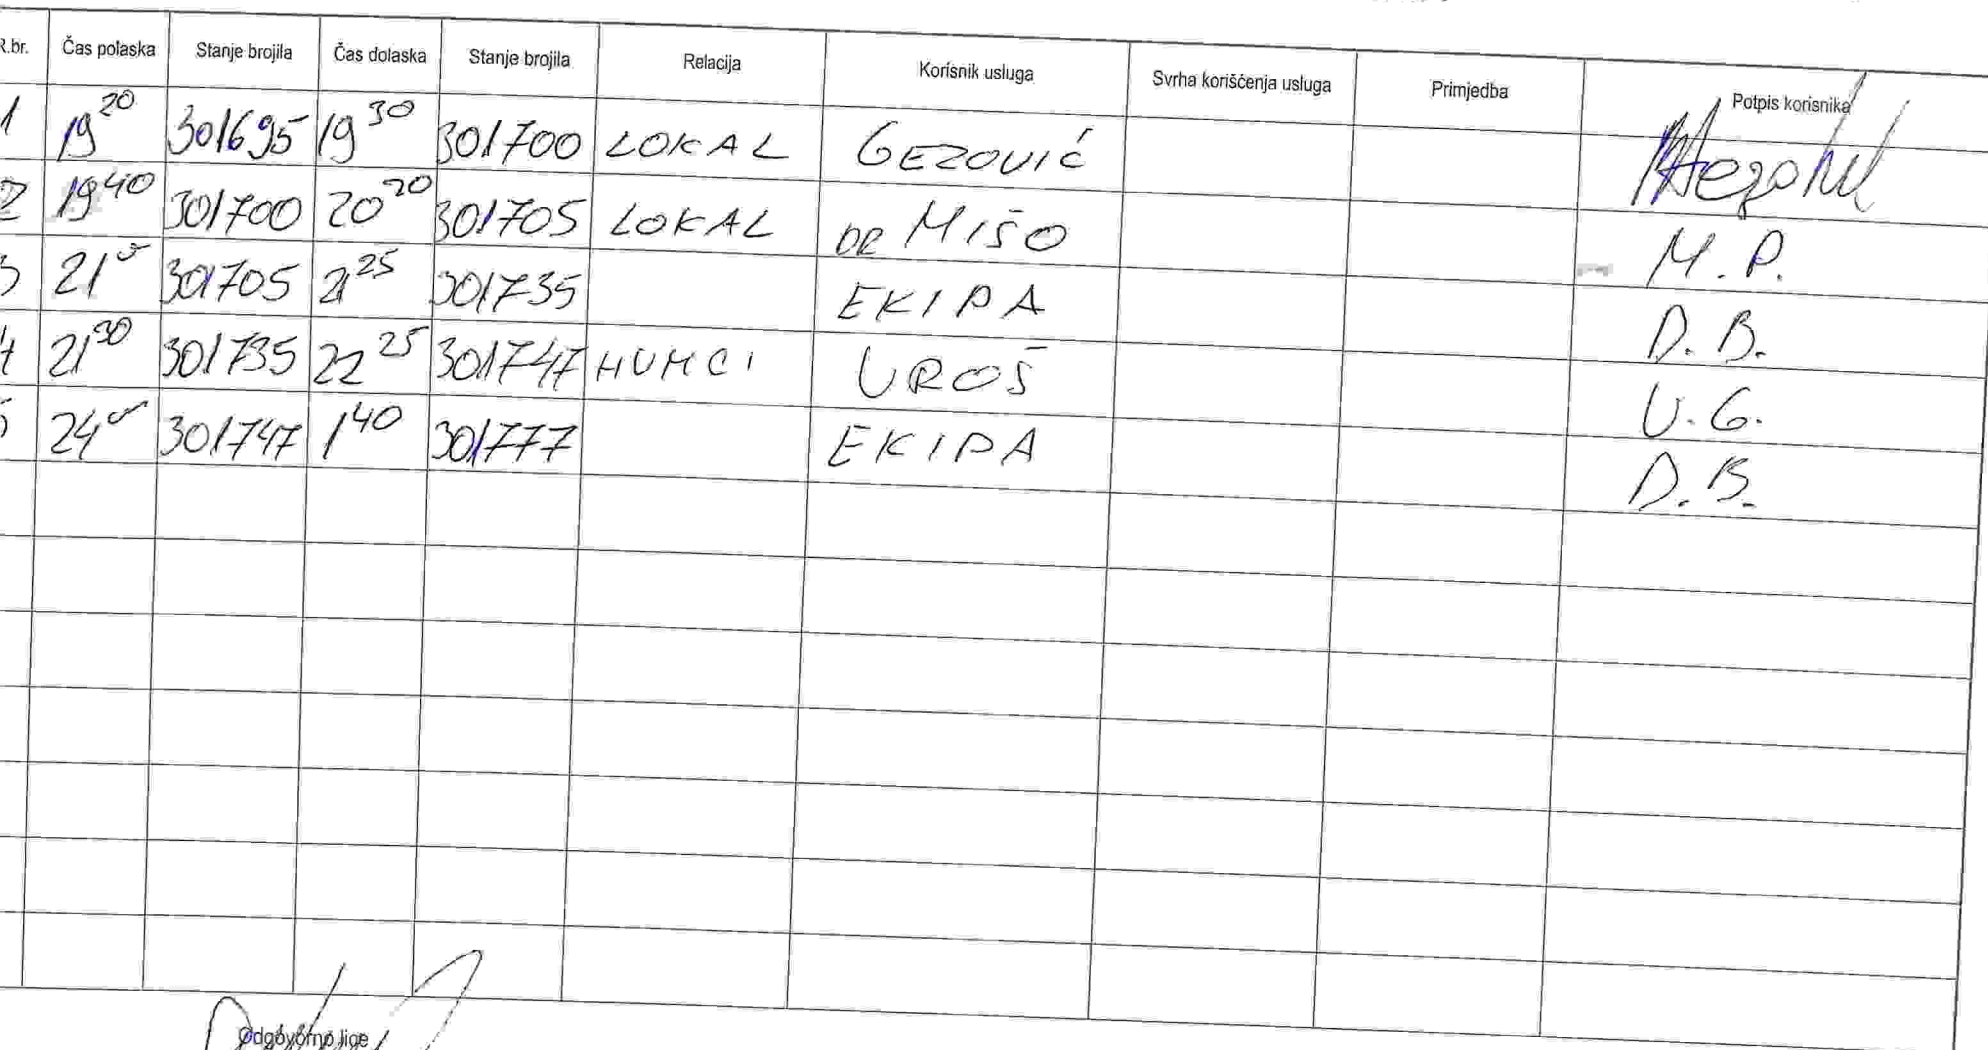 R.br. Čas polaska Stanje brojila Čas dolaska Stanje brojila Relacija Korisnik usluga Svrha korišćenja usluga Primjedba Potpis korisnika
1 19 20 301695 19 30 301700 LOKAL GEZOVIĆ
2 19 40 301700 20 20 301705 LOKAL DR MIŠO M.P.
3 21 301705 21 25 301735 EKIPA D.B.
4 21 30 301735 22 25 301747 HUMCI UROŠ U.G.
5 24 301747 1 40 301777 EKIPA D.B.
Odgovorno lice